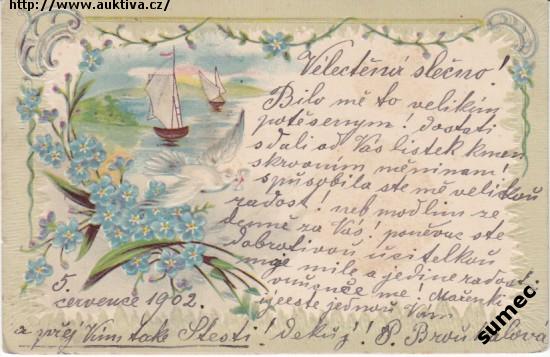 http://www.auktiva.cz/
Velectěná slečno!
Bilo mě to velikim
potěšenym! Dostati
s dali od Vás listek kmen
skrovnim měninam!
spůsobila ste mě velikou
radost! neb modlim se
denně za Vás! poněvač ste
dobrotivou učitelkou
moje milé a jedine radost
me! Mařenki
ještě jednou Vám
5.
července 1902.
a přej Vím také Štesti! dekuj! P. Broučkalova
sumec.